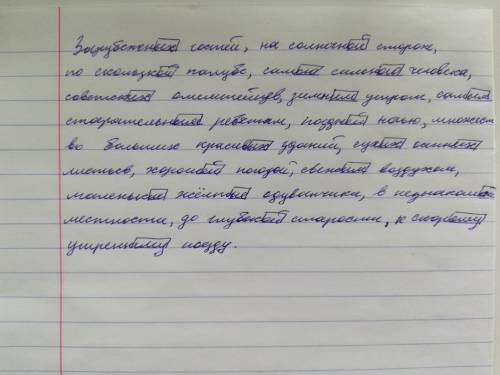 Зарубежных гостей, на солнечной стороне,
по скользкой палубе, самый сильного человека,
советских олимпийцев, зимним утром, самым
старательным ребятам, поздней ночью, множест
во больших красивых зданий, сухих осенних
листьев, хорошей погодой, свежим воздухом,
маленькие жёлтые одуванчики, в незнакомой
местности, до глубокой старости, к скорому
утреннему поезду.